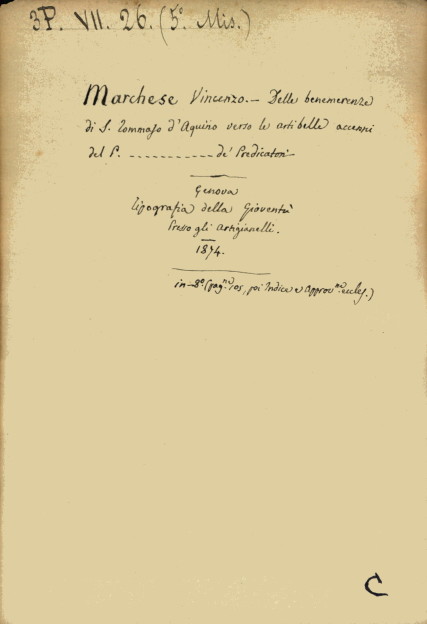 3P. VII. 26. (5º Mis.)
Marchese Vincenzo. – Delle benemerenze
di S. Tommaso d'Aquino verso le arti belle accenni
del P. ------------ de' Predicatori
Genova
Tipografia della Gioventù
Presso gli Artigianelli.
1874.
in-8º (pag.ne 105, poi Indice e Approv.ne eccles.)
C